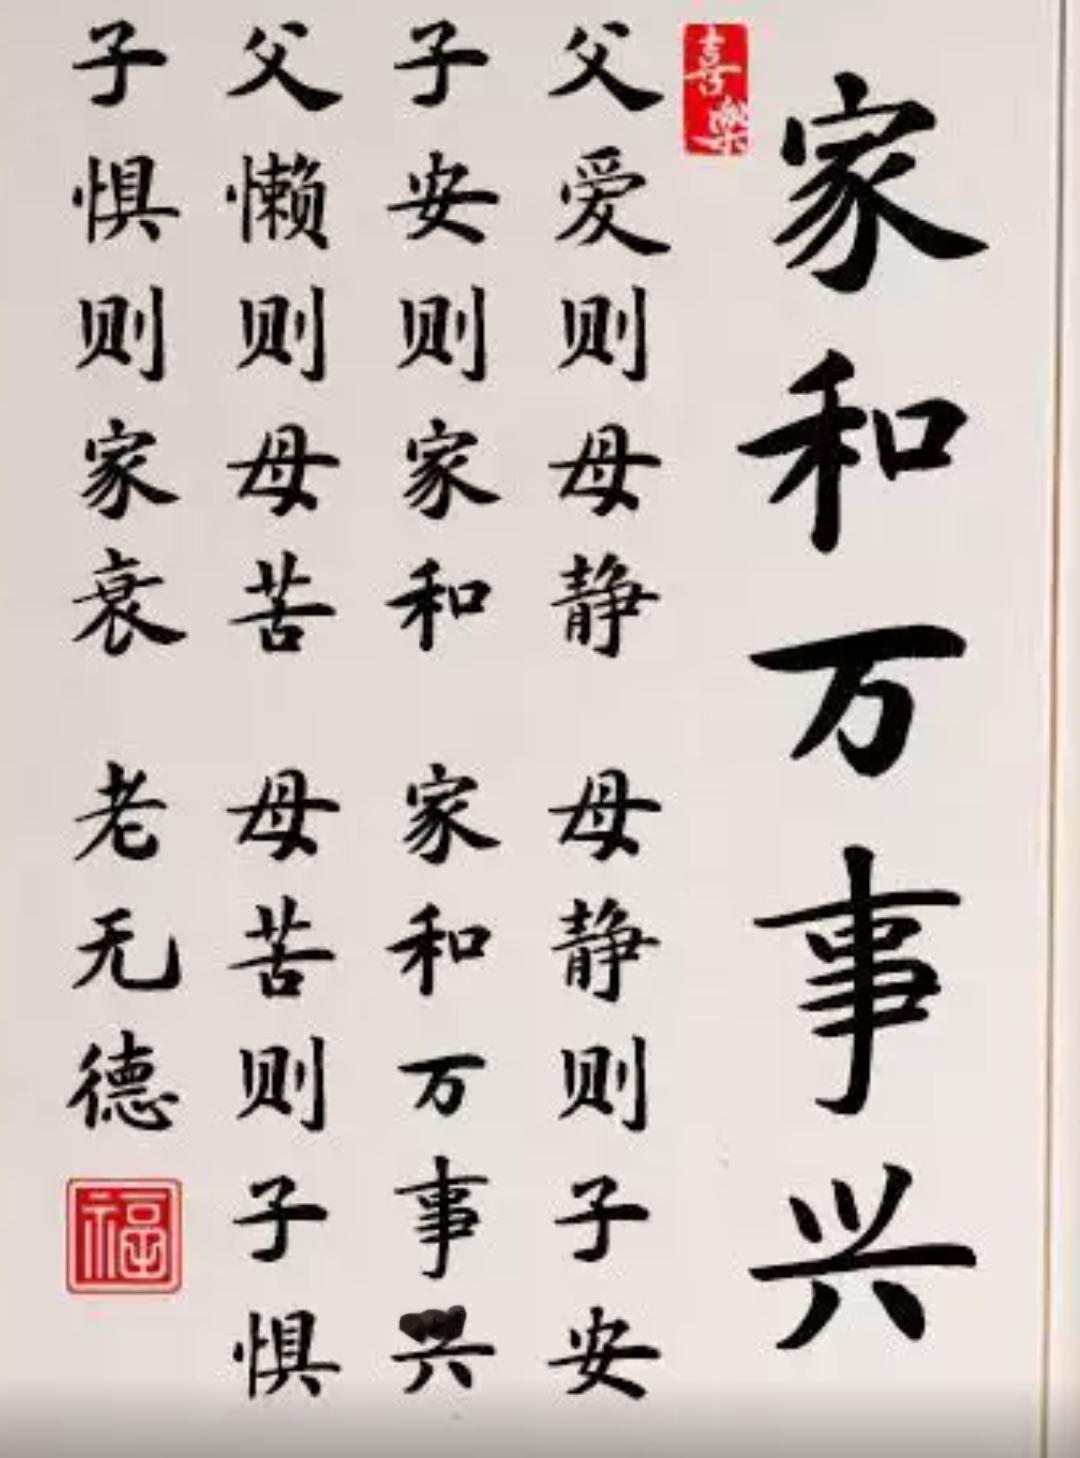 家和万事兴
喜樂
父爱则母静 母静则子安
子安则家和 家和万事兴
父懒则母苦 母苦则子惧
子惧则家衰 老无德
福